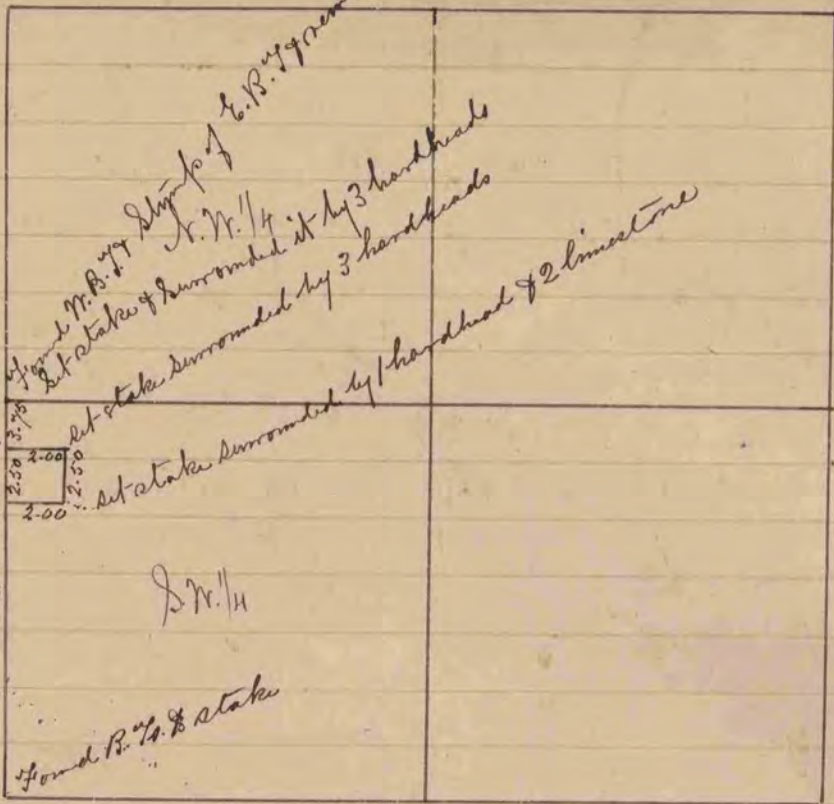 Found W. B. T. & Stump of E. B. T.
N. W. 1/4
Set stake & Surrounded it by 3 hardheads
set stake surrounded by 3 hardheads
set stake surrounded by 1 hardhead & 2 limestone
3.75
2.00
2.50
2.50
2.00
S. W. 1/4
Found B. Ts. & stake